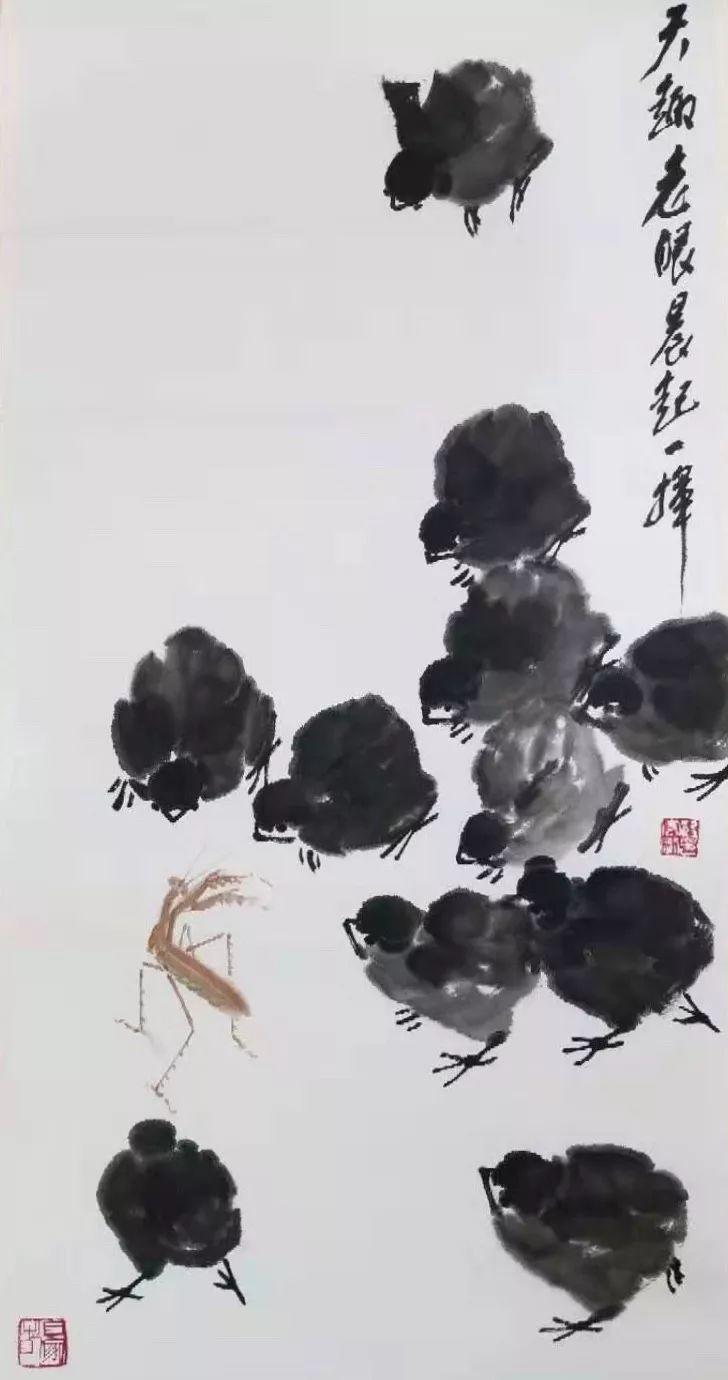 天趣老眼晨起一揮